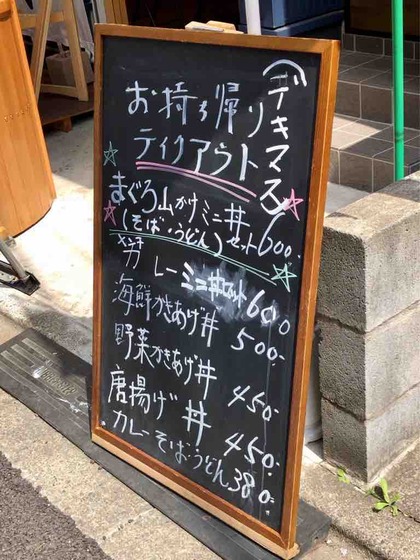 お持ち帰り
テイクアウト
(デキマス)
まぐろ山かけミニ丼
(そば・うどん)セット 600.-
カレーミニ丼セット 600
海鮮かきあげ丼 500.-
野菜かきあげ丼 450-
唐揚げ丼 450.-
カレーそば・うどん 380.-